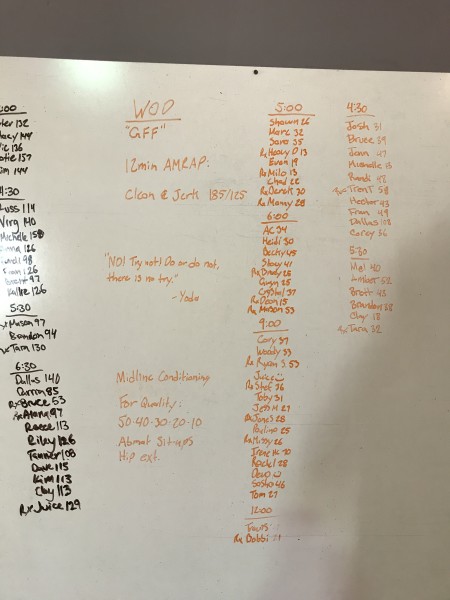 4:30
Virg 140
Michelle 158
5:30
Mason 97
Brandon 94
Tara 130
6:30
Dallas 140
Corrin 85
Rx Bruce 53
97
Reece 113
Riley 126
Tanner 108
Dave 115
Kim 113
Clay 113
Rx Juice 129
WOD
"GFF"
12min AMRAP:
Clean & Jerk 185/125
"NO! Try not! Do or do not,
there is no try."
- Yoda
Midline Conditioning
For Quality:
50-40-30-20-10
Abmat Sit-ups
Hip ext.
5:00
Shawn 26
Marc 32
Sara 35
Rx Heavy D 13
Evan 19
Rx Milo 13
Chad 22
Rx Derek 30
Rx Manny 28
6:00
AC 34
Heidi 30
Becky 45
Stacy 41
Rx Dindy 26
Gwyn 25
Crystal 37
Rx Dean 15
Rx Mason 53
9:00
Cory 37
Woody 33
Rx Ryan S. 53
Juice
Rx Stef 36
Toby 31
Jess M 27
Rx Jones 28
Paulina 25
Rx Missy 26
Irene H. 30
Rachel 28
Sasha 46
Tom 27
12:00
Travis
Rx Bobbi
4:30
Josh 31
Bruce 39
Jenn 47
Michelle 13
Randi 42
Trent 58
Heather 43
Fran 49
Dallas 108
Corey 36
5:30
Mel 40
Amber 52
Brett 43
Brandon 28
Clay 18
Tara 32